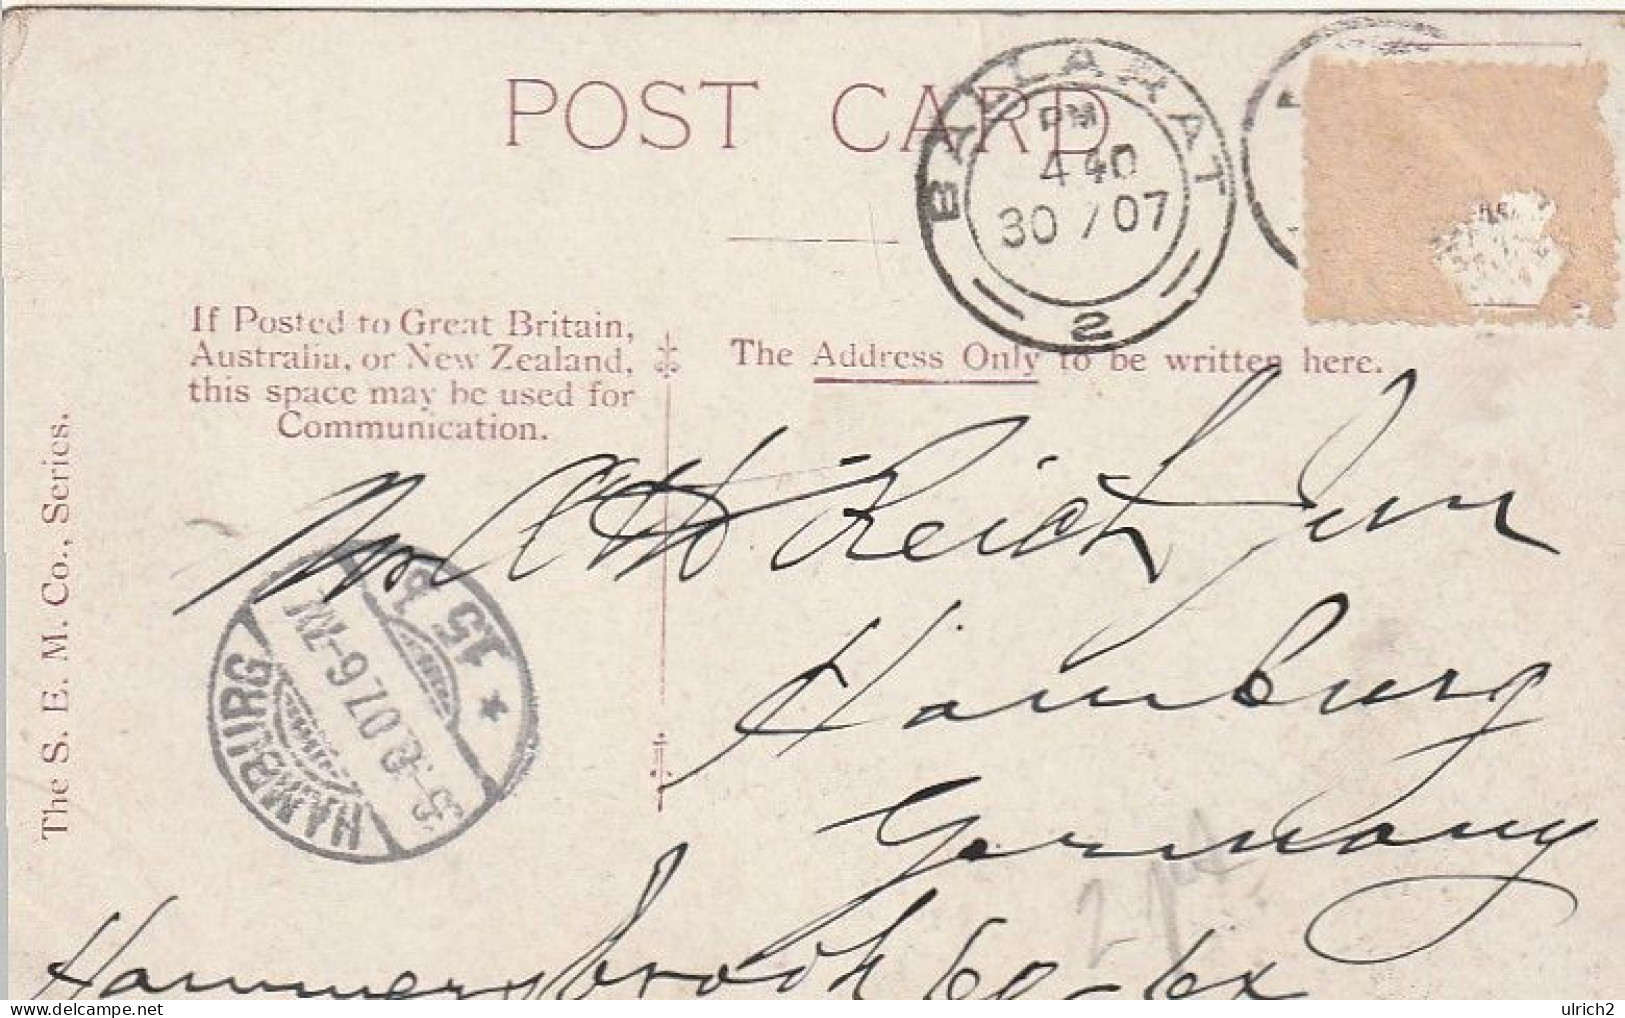 POST CARD
BALLARAT
PM
4 40
30 / 07
2
If Posted to Great Britain,
Australia, or New Zealand,
this space may be used for
Communication.
The Address Only to be written here.
The S. E. M. Co., Series.
Reich Jun
Hamburg
Germany
Hammerbrook 60-62
HAMBURG
15
ulrich2